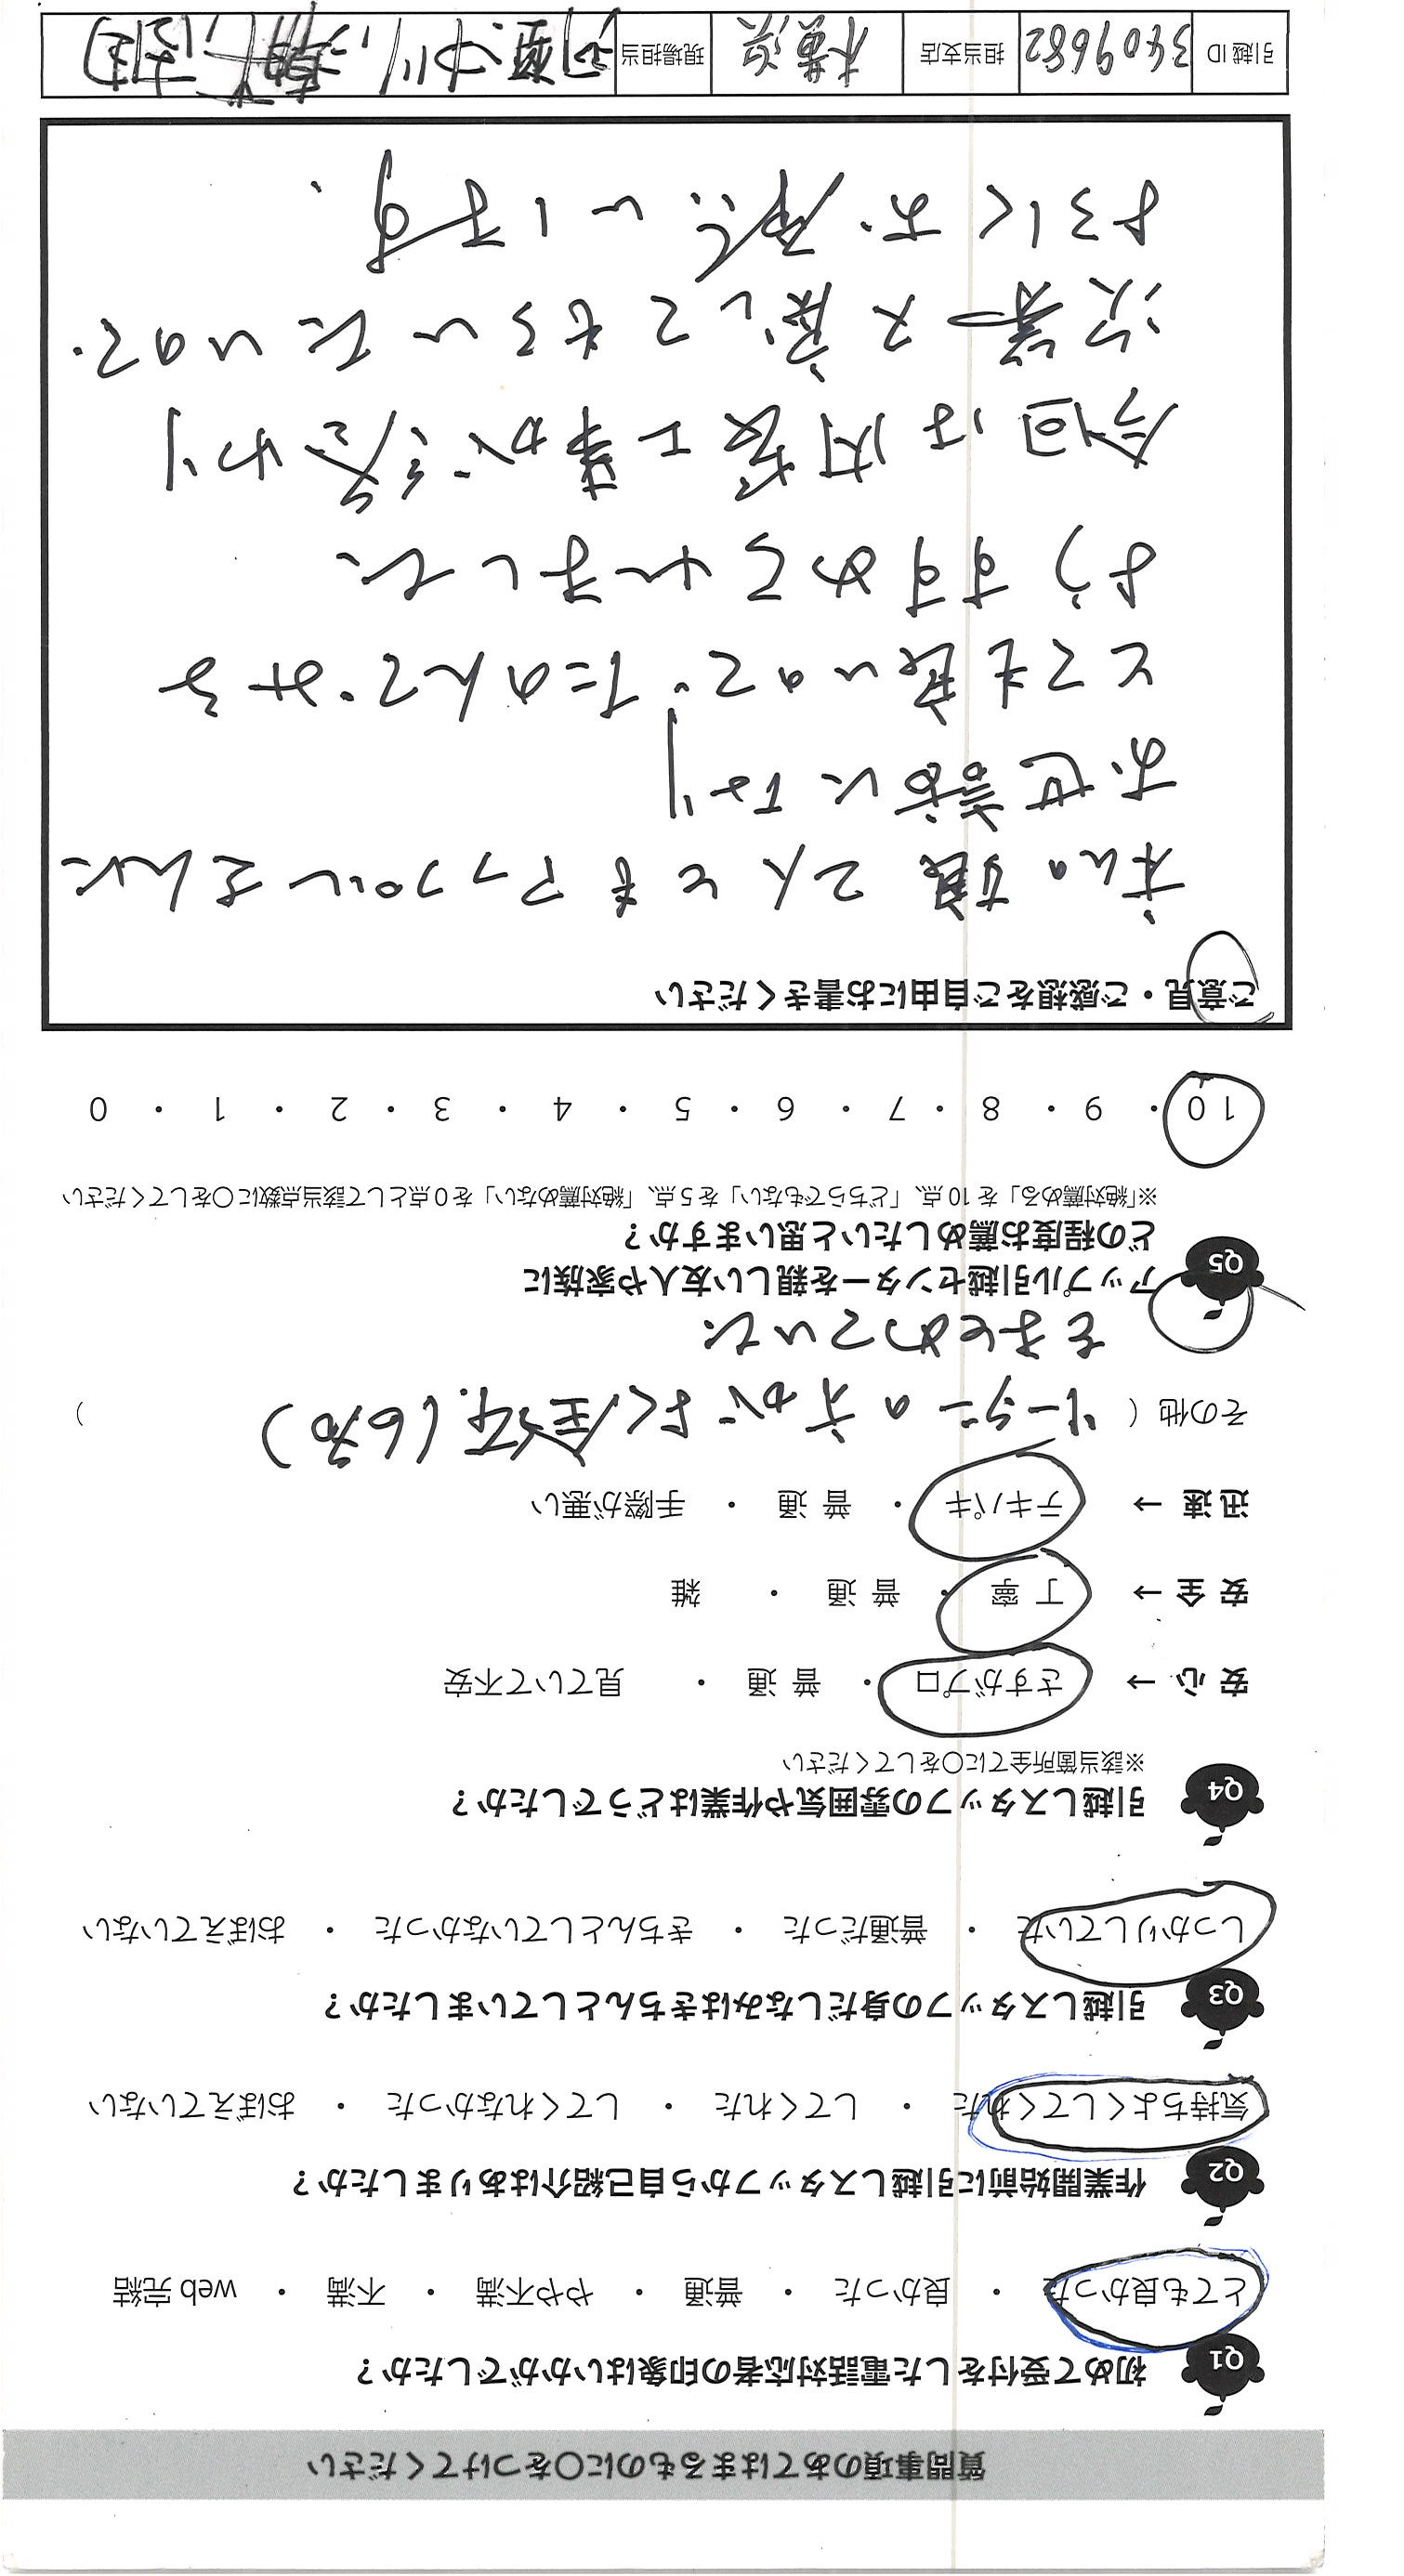 質問事項のあてはまるものに〇をつけてください
Q1 初めて受付をした電話対応者の印象はいかがでしたか？
とても良かった ・ 良かった ・ 普通 ・ やや不満 ・ 不満 ・ web 完結
Q2 作業開始前に引越しスタッフから自己紹介はありましたか？
気持ちよくしてくれた ・ してくれた ・ してくれなかった ・ おぼえていない
Q3 引越しスタッフの身だしなみはきちんとしていましたか？
しっかりしていた ・ 普通だった ・ きちんとしていなかった ・ おぼえていない
Q4 引越しスタッフの雰囲気や作業はどうでしたか？
※該当箇所全てに〇をしてください
安 心 → さすがプロ ・ 普 通 ・ 見ていて不安
安 全 → 丁 寧 ・ 普 通 ・ 雑
迅 速 → テキパキ ・ 普 通 ・ 手際が悪い
その他（ リーダーの方がよく全体(6名) ）
をまとめていた
Q5 アップル引越センターを親しい友人や家族に
どの程度お薦めしたいと思いますか？
※「絶対薦める」を 10 点、「どちらでもない」を 5 点、「絶対薦めない」を 0 点として該当点数に〇をしてください
10 ・ 9 ・ 8 ・ 7 ・ 6 ・ 5 ・ 4 ・ 3 ・ 2 ・ 1 ・ 0
ご意見・ご感想をご自由にお書きください
私の娘2人ともアップルさんに
お世話になり
とても良いので、たのんでみる
ようすすめてくれました
今回は内装工事が終わり
次第又戻してもらいたいので
よろしくお願いします.
引越 ID 3409682 担当支店 横浜 現場担当